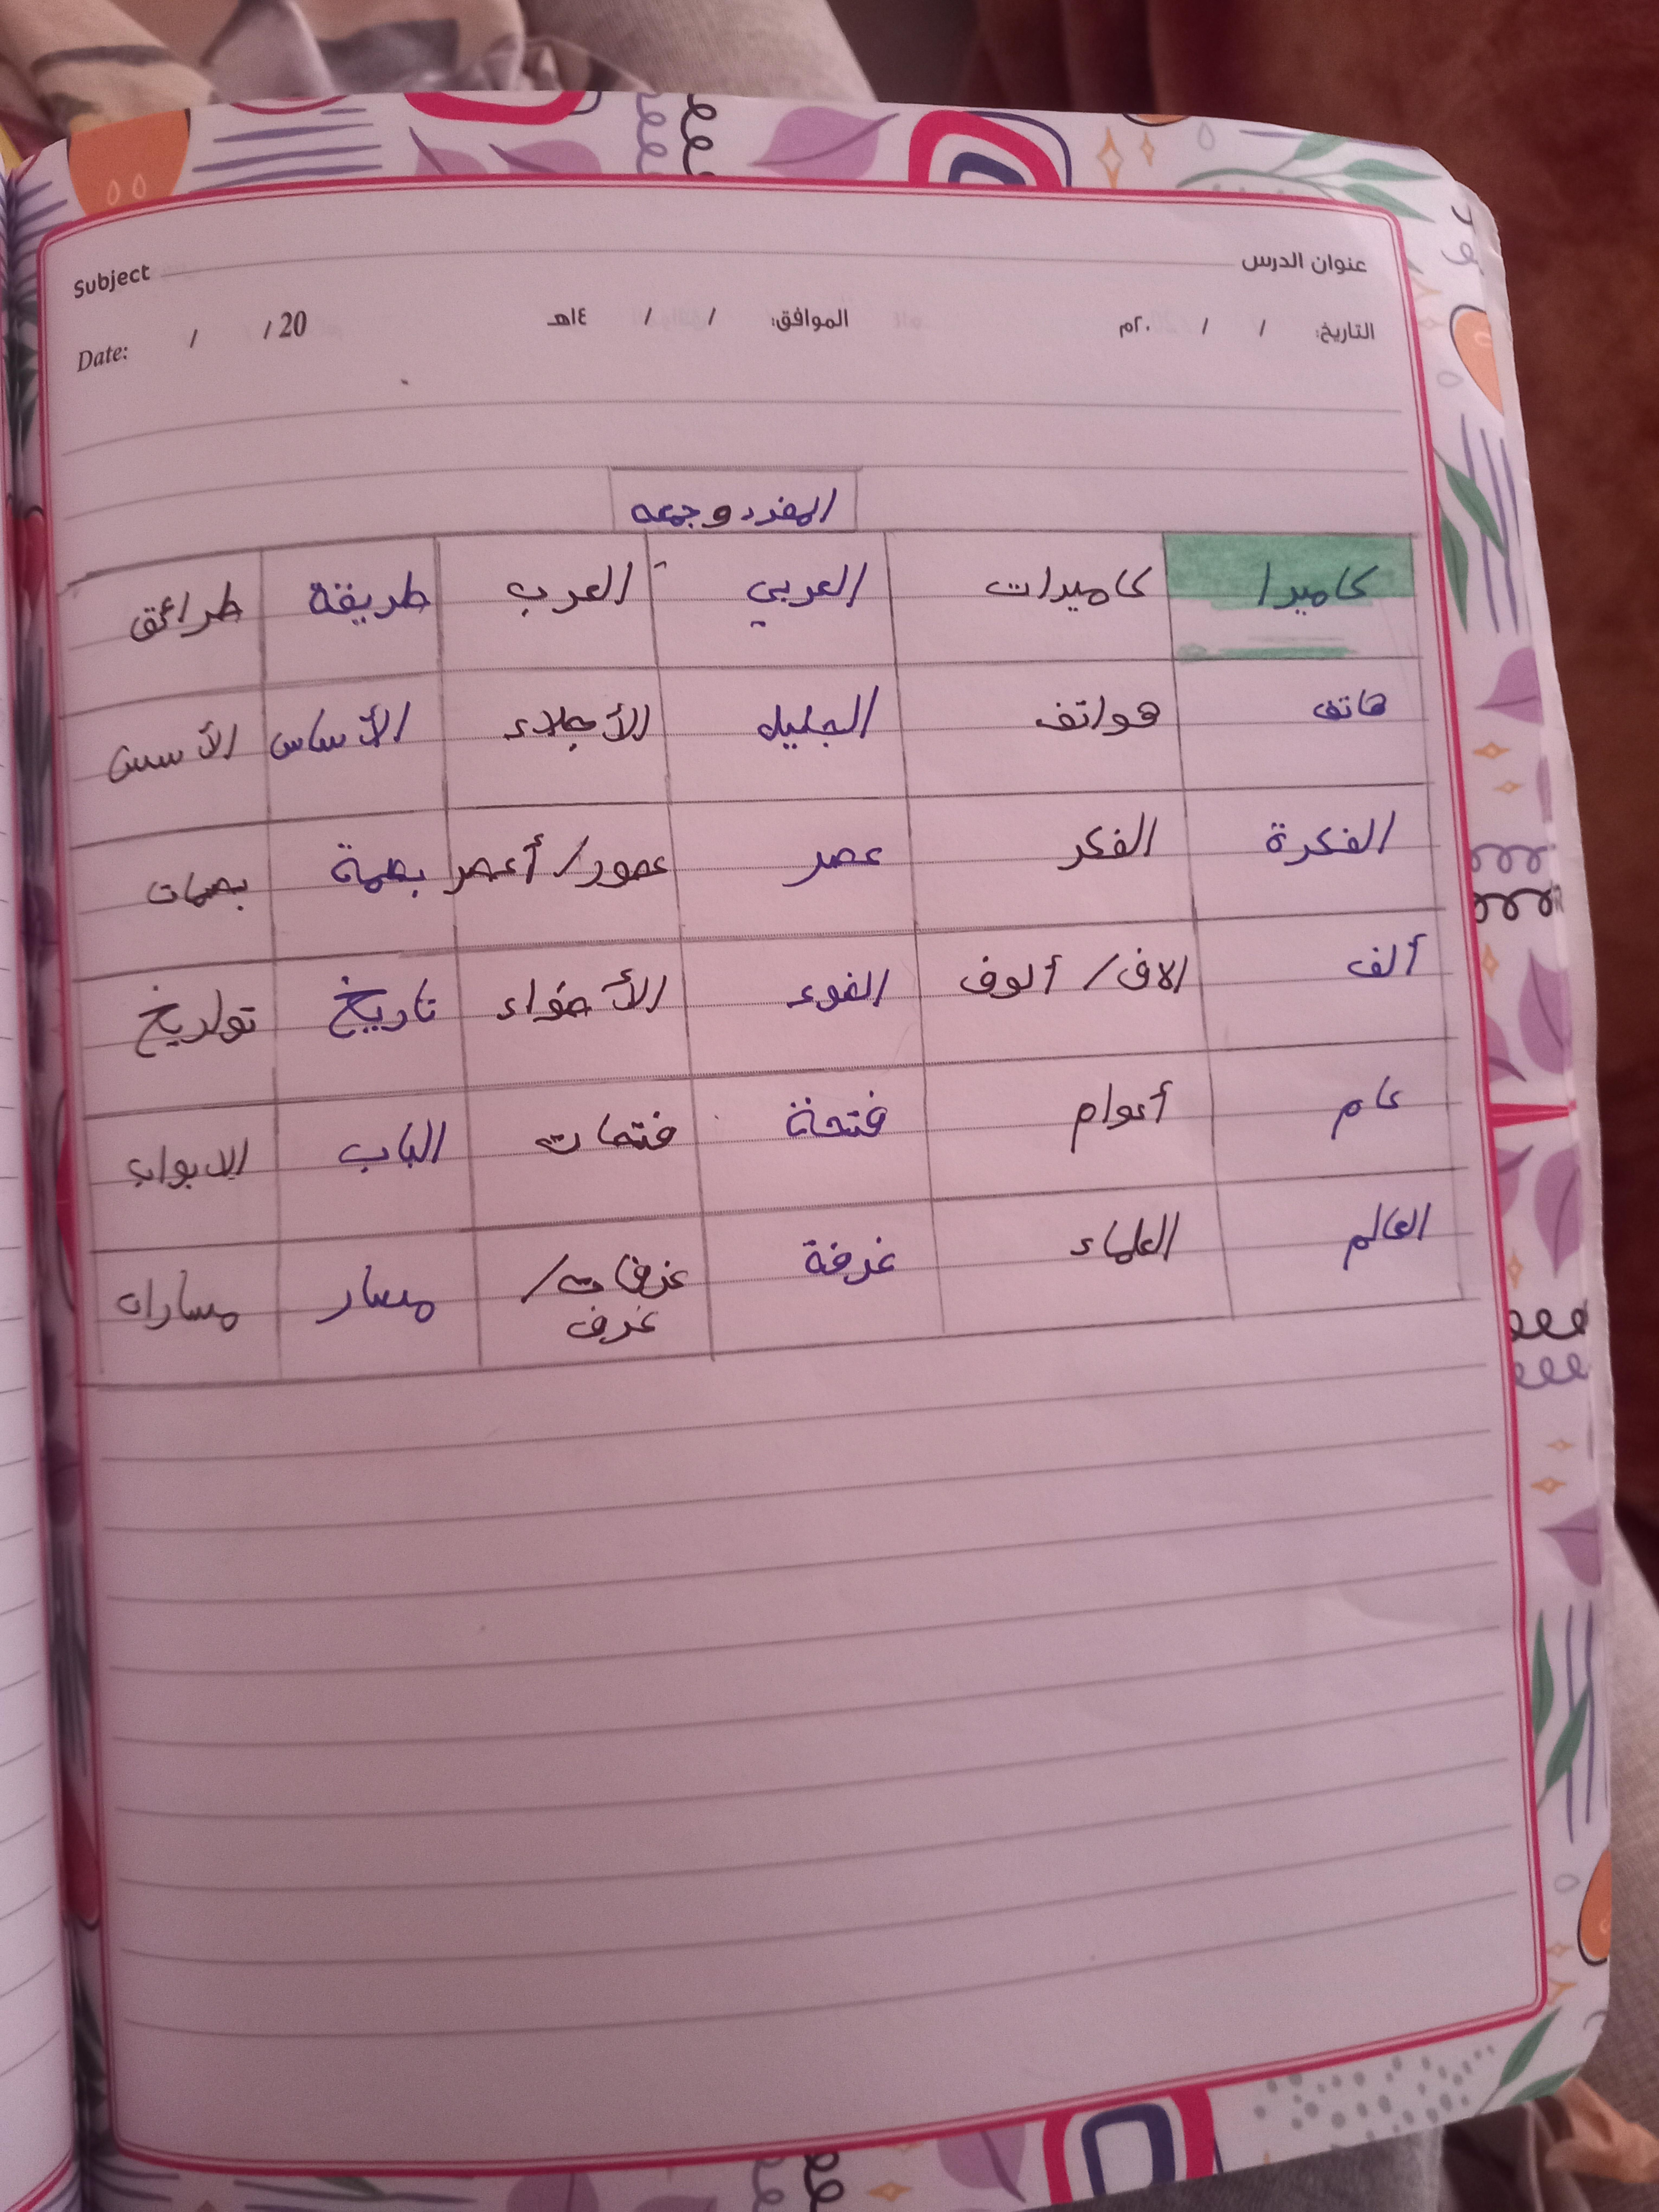 عنوان الدرس Subject
التاريخ: / / ٢٠م الموافق: / / ١٤هـ Date: / / 20
المفرد وجمعه
كاميرا كاميرات العربي العرب طريقة طرائق
هاتف هواتف الجليل الأجلاء الأساس الأسس
الفكرة الفكر عصر عصور/أعصر بصمة بصمات
ألف الاف/ألوف الضوء الأضواء تاريخ تواريخ
عام أعوام فتحة فتحات الباب الابواب
العالم العلماء غرفة غرفات/ مسار مسارات
غرف